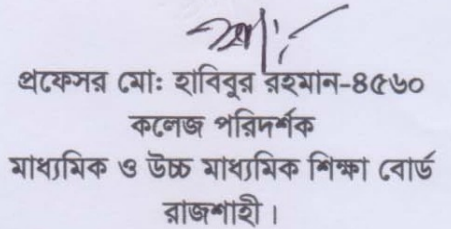 প্রফেসর মো: হাবিবুর রহমান-৪৫৬০
কলেজ পরিদর্শক
মাধ্যমিক ও উচ্চ মাধ্যমিক শিক্ষা বোর্ড
রাজশাহী।